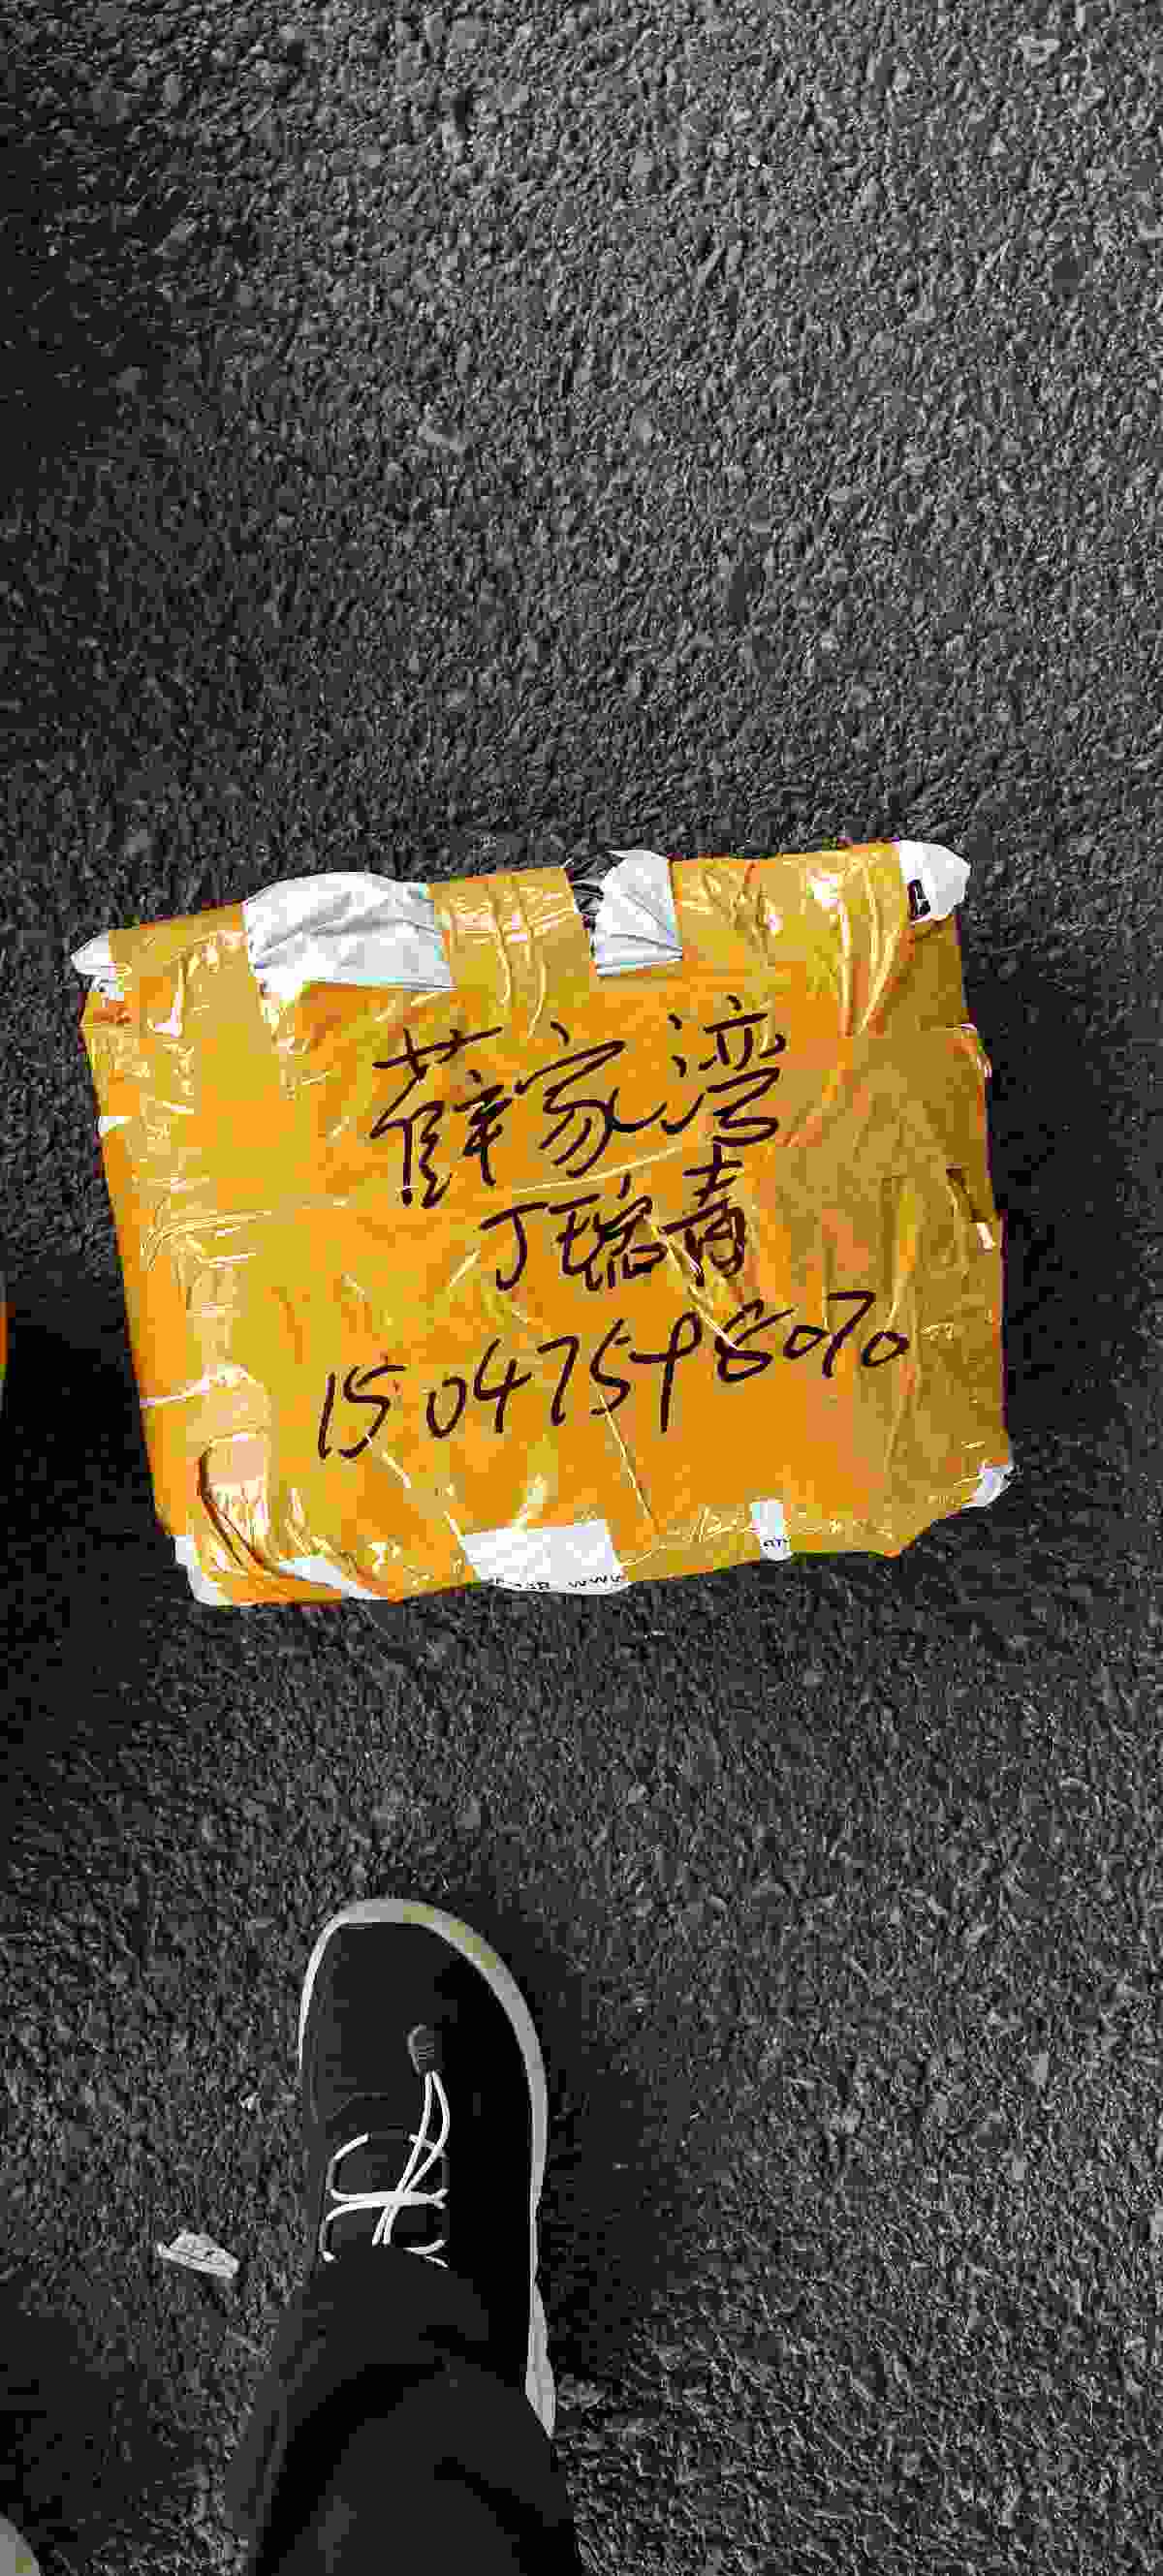 薛家湾
丁瑞青
15047598070
www